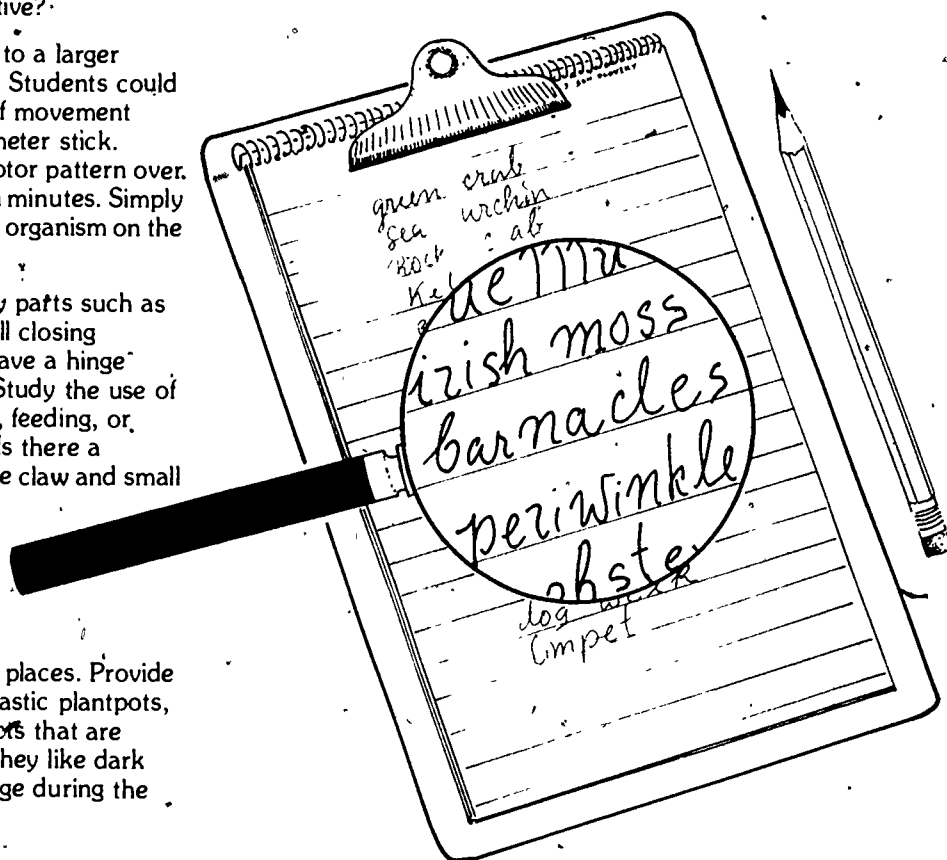 tive?
to a larger
Students could
f movement
neter stick.
otor pattern over
minutes. Simply
organism on the
y parts such as
ll closing
ave a hinge
Study the use of
, feeding, or
s there a
e claw and small
places. Provide
astic plantpots,
ots that are
hey like dark
ge during the
green crab
sea urchin
rock ab
Ke
ue mu
irish moss
barnacles
periwinkle
obste
dog
limpet